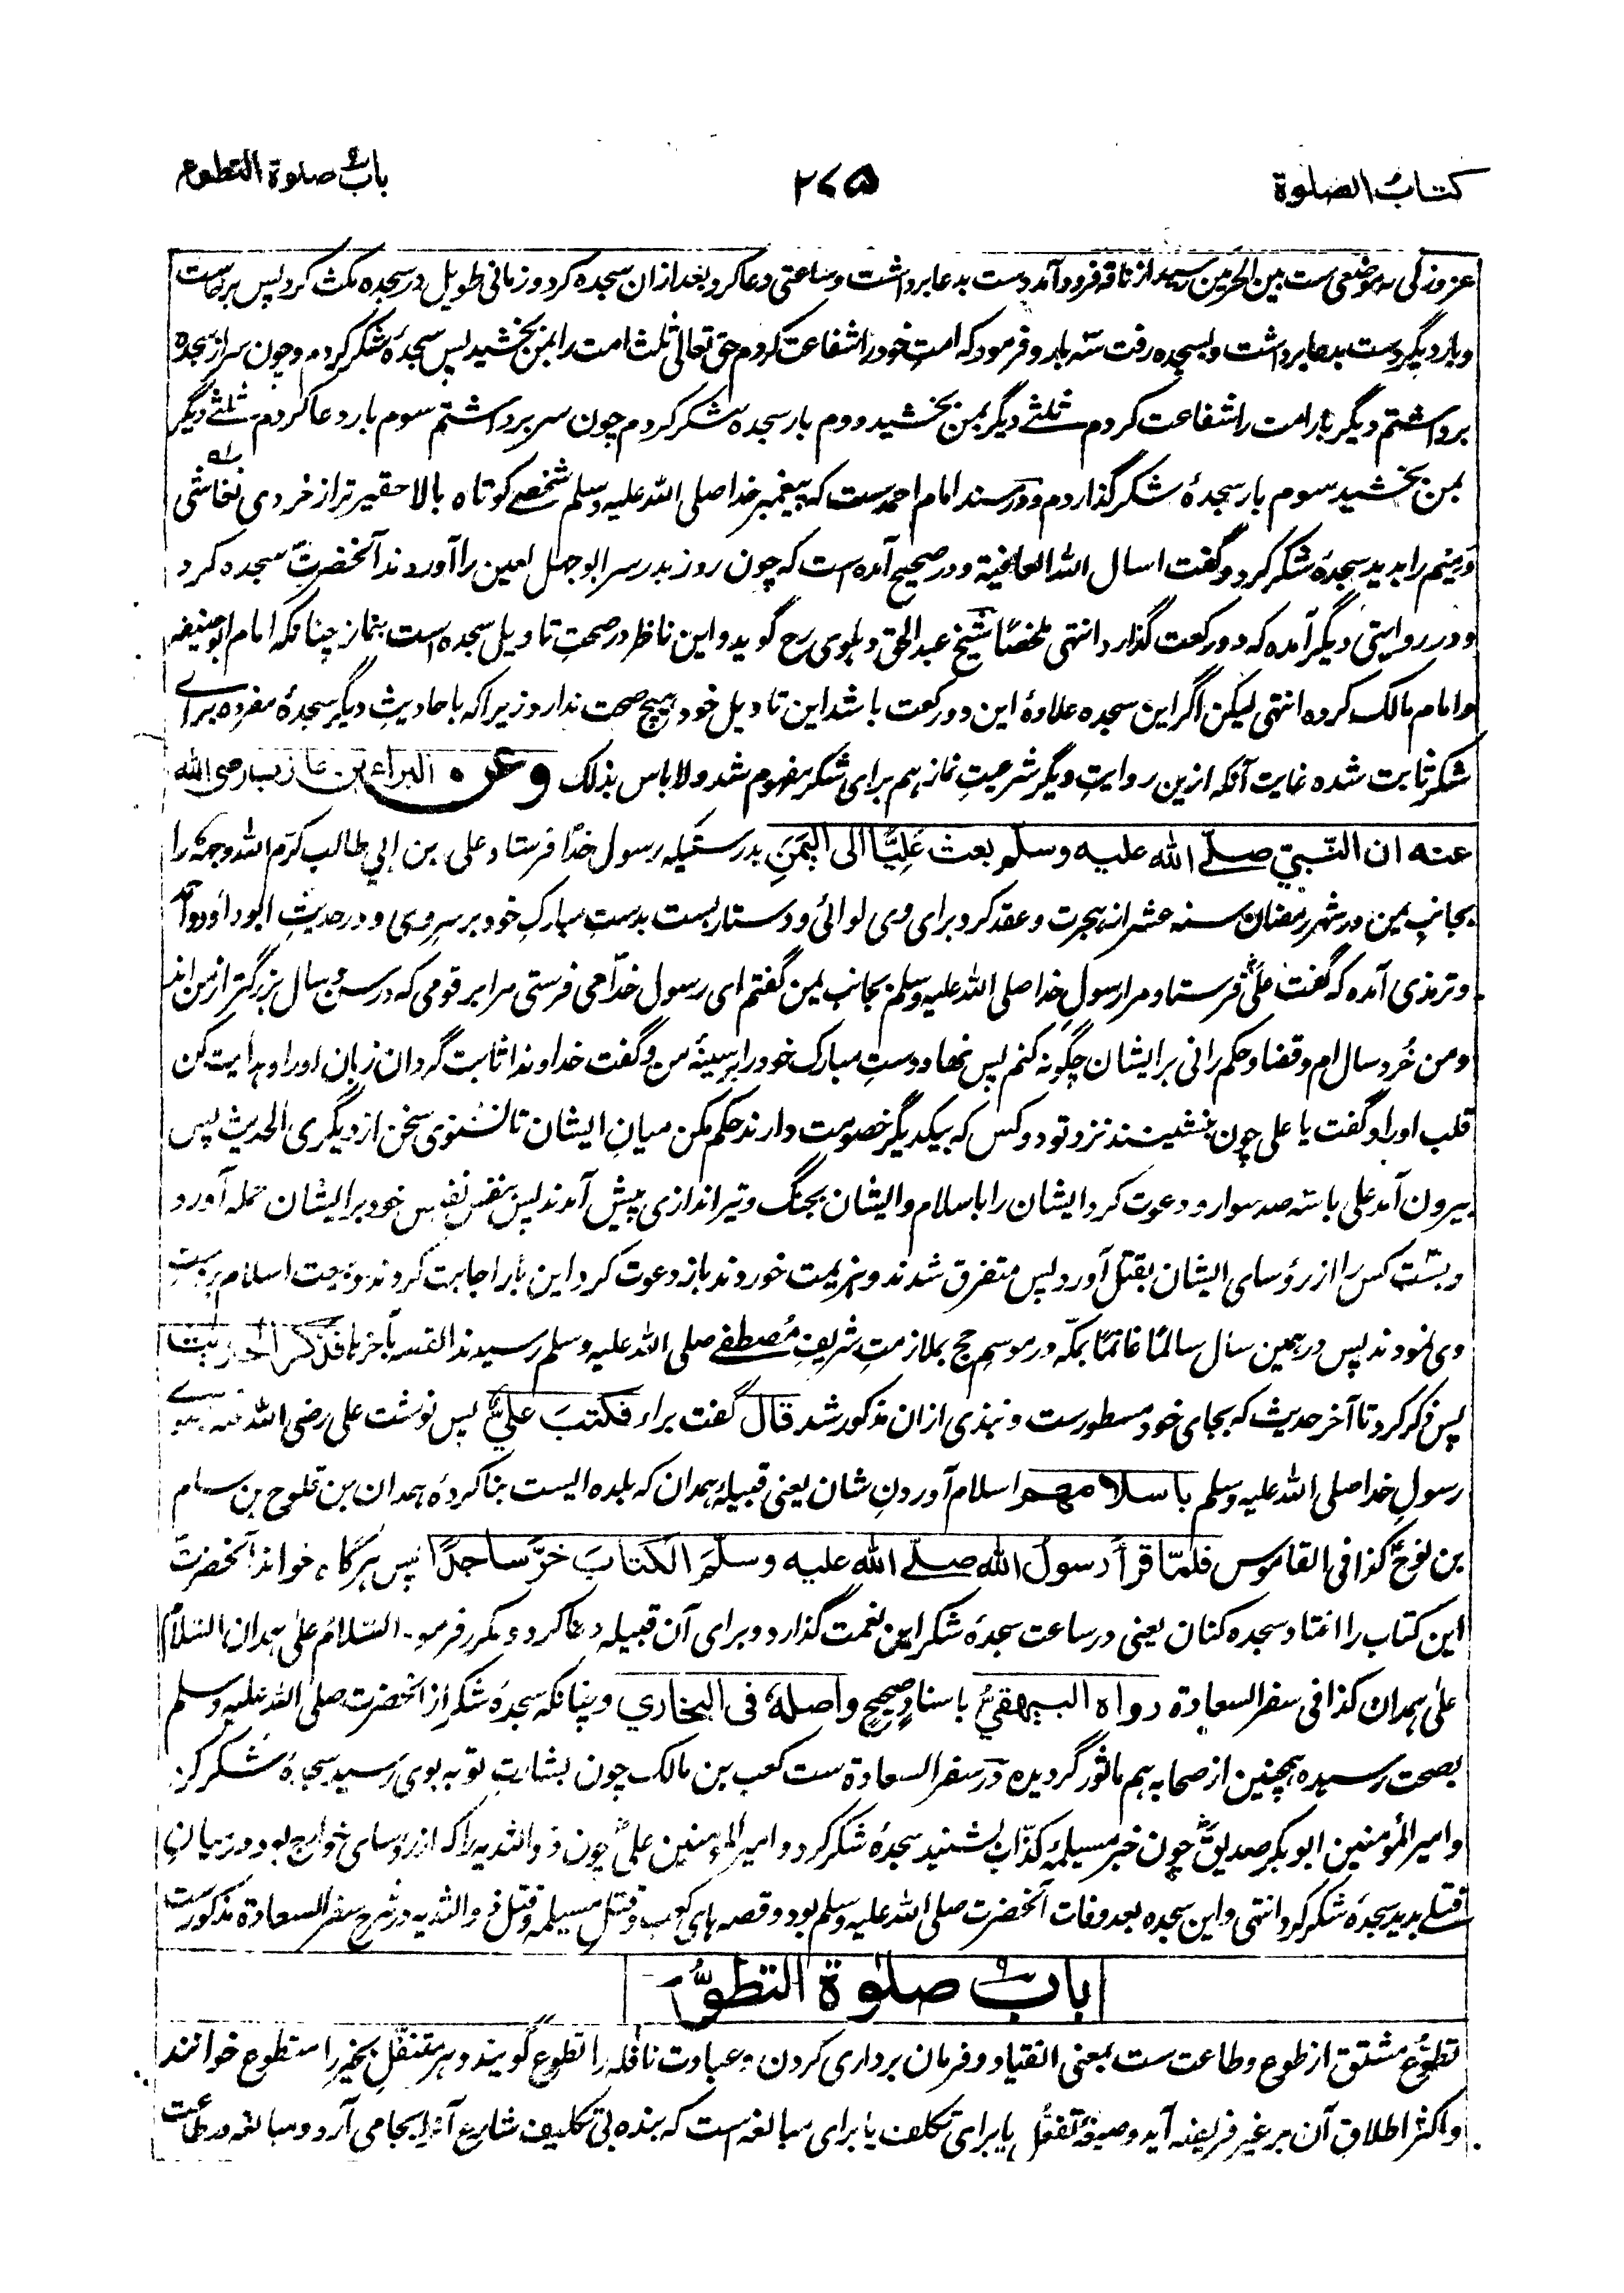 کتاب الصلوة
۲۷۵
باب صلوة التطوع
عزوزکی که موضعی ست بین الحرمین رسید از ناقه فرود آمد و دست بدعا برداشت و ساعتی دعا کرد بعد ازان سجده کرد و زمانی طویل در سجده مکث کرد پس برخاست
و بار دیگر دست بدعا برداشت و بسجده رفت سه بار و فرمود که امت خود را شفاعت کردم حق تعالی ثلث امت را بمن بخشید پس سجدهٔ شکر کردم و چون سر از سجده
برداشتم دیگر بار امت را شفاعت کردم ثلثے دیگر بمن بخشید دوم بار سجده شکر کردم چون سر برداشتم سوم بار دعا کردم ثلثے دیگر
بمن بخشید سوم بار سجدهٔ شکر گذاردم و در سند امام احمد ست که پیغمبر خدا صلی الله علیه وسلم شخصے کوتاه بالا حقیر تر از خردی نغاشی
ذمیم را بدید سجدهٔ شکر کرد و گفت اسال الله العافیة و در صحیح آمده است که چون روز بدر سر ابوجهل لعین را آوردند آنحضرت سجده کرد
و در روایتی دیگر آمده که دو رکعت گذارد انتهی ملخصًا شیخ عبد الحق دهلوی رح گوید و این ناظر در صحت تاویل سجده است بنماز چنانکه امام ابوحنیفه
و امام مالک کرده انتهی لیکن اگر این سجده علاوهٔ این دو رکعت باشد این تاویل خود هیچ صحت ندارد زیرا که باحادیث دیگر سجدهٔ مفرده برای
شکر ثابت شده غایت آنکه ازین روایت دیگر شرعیت نماز هم برای شکر مفهوم شد و لا باس بذلک وعن البراء بن عازب رضی الله
عنه ان النبی صلی الله علیه وسلم بعث علیًا الی الیمن بدرستیکه رسول خدا فرستاد علی بن ابی طالب کرم الله وجهه را
بجانب یمن در شهر رمضان سنه عشر از هجرت و عقد کرد برای وی لوائی و دستار بست بدست مبارک خود بر سر وی و در حدیث ابوداؤد و احمد
و ترمذی آمده که گفت علیؓ فرستاد مرا رسول خدا صلی الله علیه وسلم بجانب یمن گفتم ای رسول خدا می فرستی مرا بر قومی که در سن و سال بزرگتر از من اند
و من خُرد سال ام و قضا و حکم رانی بر ایشان چگونه کنم پس نهاد دست مبارک خود را بر سینهٔ من و گفت خداوندا ثابت گردان زبان او را و هدایت کن
قلب او را و گفت یا علی چون بنشینند نزد تو دو کس که بیکدیگر خصومت دارند حکم مکن میان ایشان تا نشنوی سخن از دیگری الحدیث پس
بیرون آمد علی با سه صد سوار و دعوت کرد ایشان را باسلام و ایشان بجنگ و تیراندازی پیش آمدند پس بنفس نفیس خود بر ایشان حمله آورد
و بست کس را از رؤسای ایشان بقتل آورد پس متفرق شدند و هزیمت خوردند باز دعوت کرد این بار اجابت کردند و بیعت اسلام بر دست
وی نمودند پس در همین سال سالمًا غانمًا بمکه در موسم حج بملازمت شریف مصطفے صلی الله علیه وسلم رسیدند القصه بآخرها فذکر الحدیث
پس ذکر کرد تا آخر حدیث که بجای خود مسطورست و نبذی ازان مذکور شد قال گفت براء فکتب علیؓ پس نوشت علی رضی الله عنه بسوی
رسول خدا صلی الله علیه وسلم باسلامهم اسلام آوردن شان یعنی قبیلهٔ همدان که بلده ایست بنا کردهٔ همدان بن فلوح بن سام
بن نوح کذا فی القاموس فلما قرأ رسول الله صلی الله علیه وسلم الکتاب خرَّ ساجدًا پس هرگاه خواند آنحضرت
این کتاب را افتاد سجده کنان یعنی در ساعت سجدهٔ شکر این نعمت گذارد و برای آن قبیله دعا کرد و مکرر فرمود السلام علی همدان السلام
علی همدان کذا فی سفر السعادة رواه البیهقی باسناد صحیح واصله فی البخاری و چنانکه سجدهٔ شکر از آنحضرت صلی الله علیه وسلم
بصحت رسیده همچنین از صحابه هم ماثور گردیده در سفر السعادة ست کعب بن مالک چون بشارت توبه بوی رسید سجدهٔ شکر کرد
و امیر المؤمنین ابوبکر صدیقؓ چون خبر مسیلمهٔ کذاب بشنید سجدهٔ شکر کرد و امیر المؤمنین علیؓ چون ذو الثدیه را که از رؤسای خوارج بود در میان
قتلے بدید سجدهٔ شکر کرد انتهی و این سجده بعد وفات آنحضرت صلی الله علیه وسلم بود و قصه های کعب و قتل مسیلمه و قتل ذو الثدیه در شرح سفر السعادة مذکورست
باب صلوة التطوع
تطوّع مشتق از طوع و طاعت ست بمعنی انقیاد و فرمان برداری کردن و عبادت نافله را تطوع گویند و هر متنفل بخیر را متطوع خوانند
و اکثر اطلاق آن بر غیر فریضه آید و صیغهٔ تفعّل یا برای تکلف یا برای مبالغه است که بنده بی تکلیف شارع آنرا بجا می آرد و مبالغه در طاعت